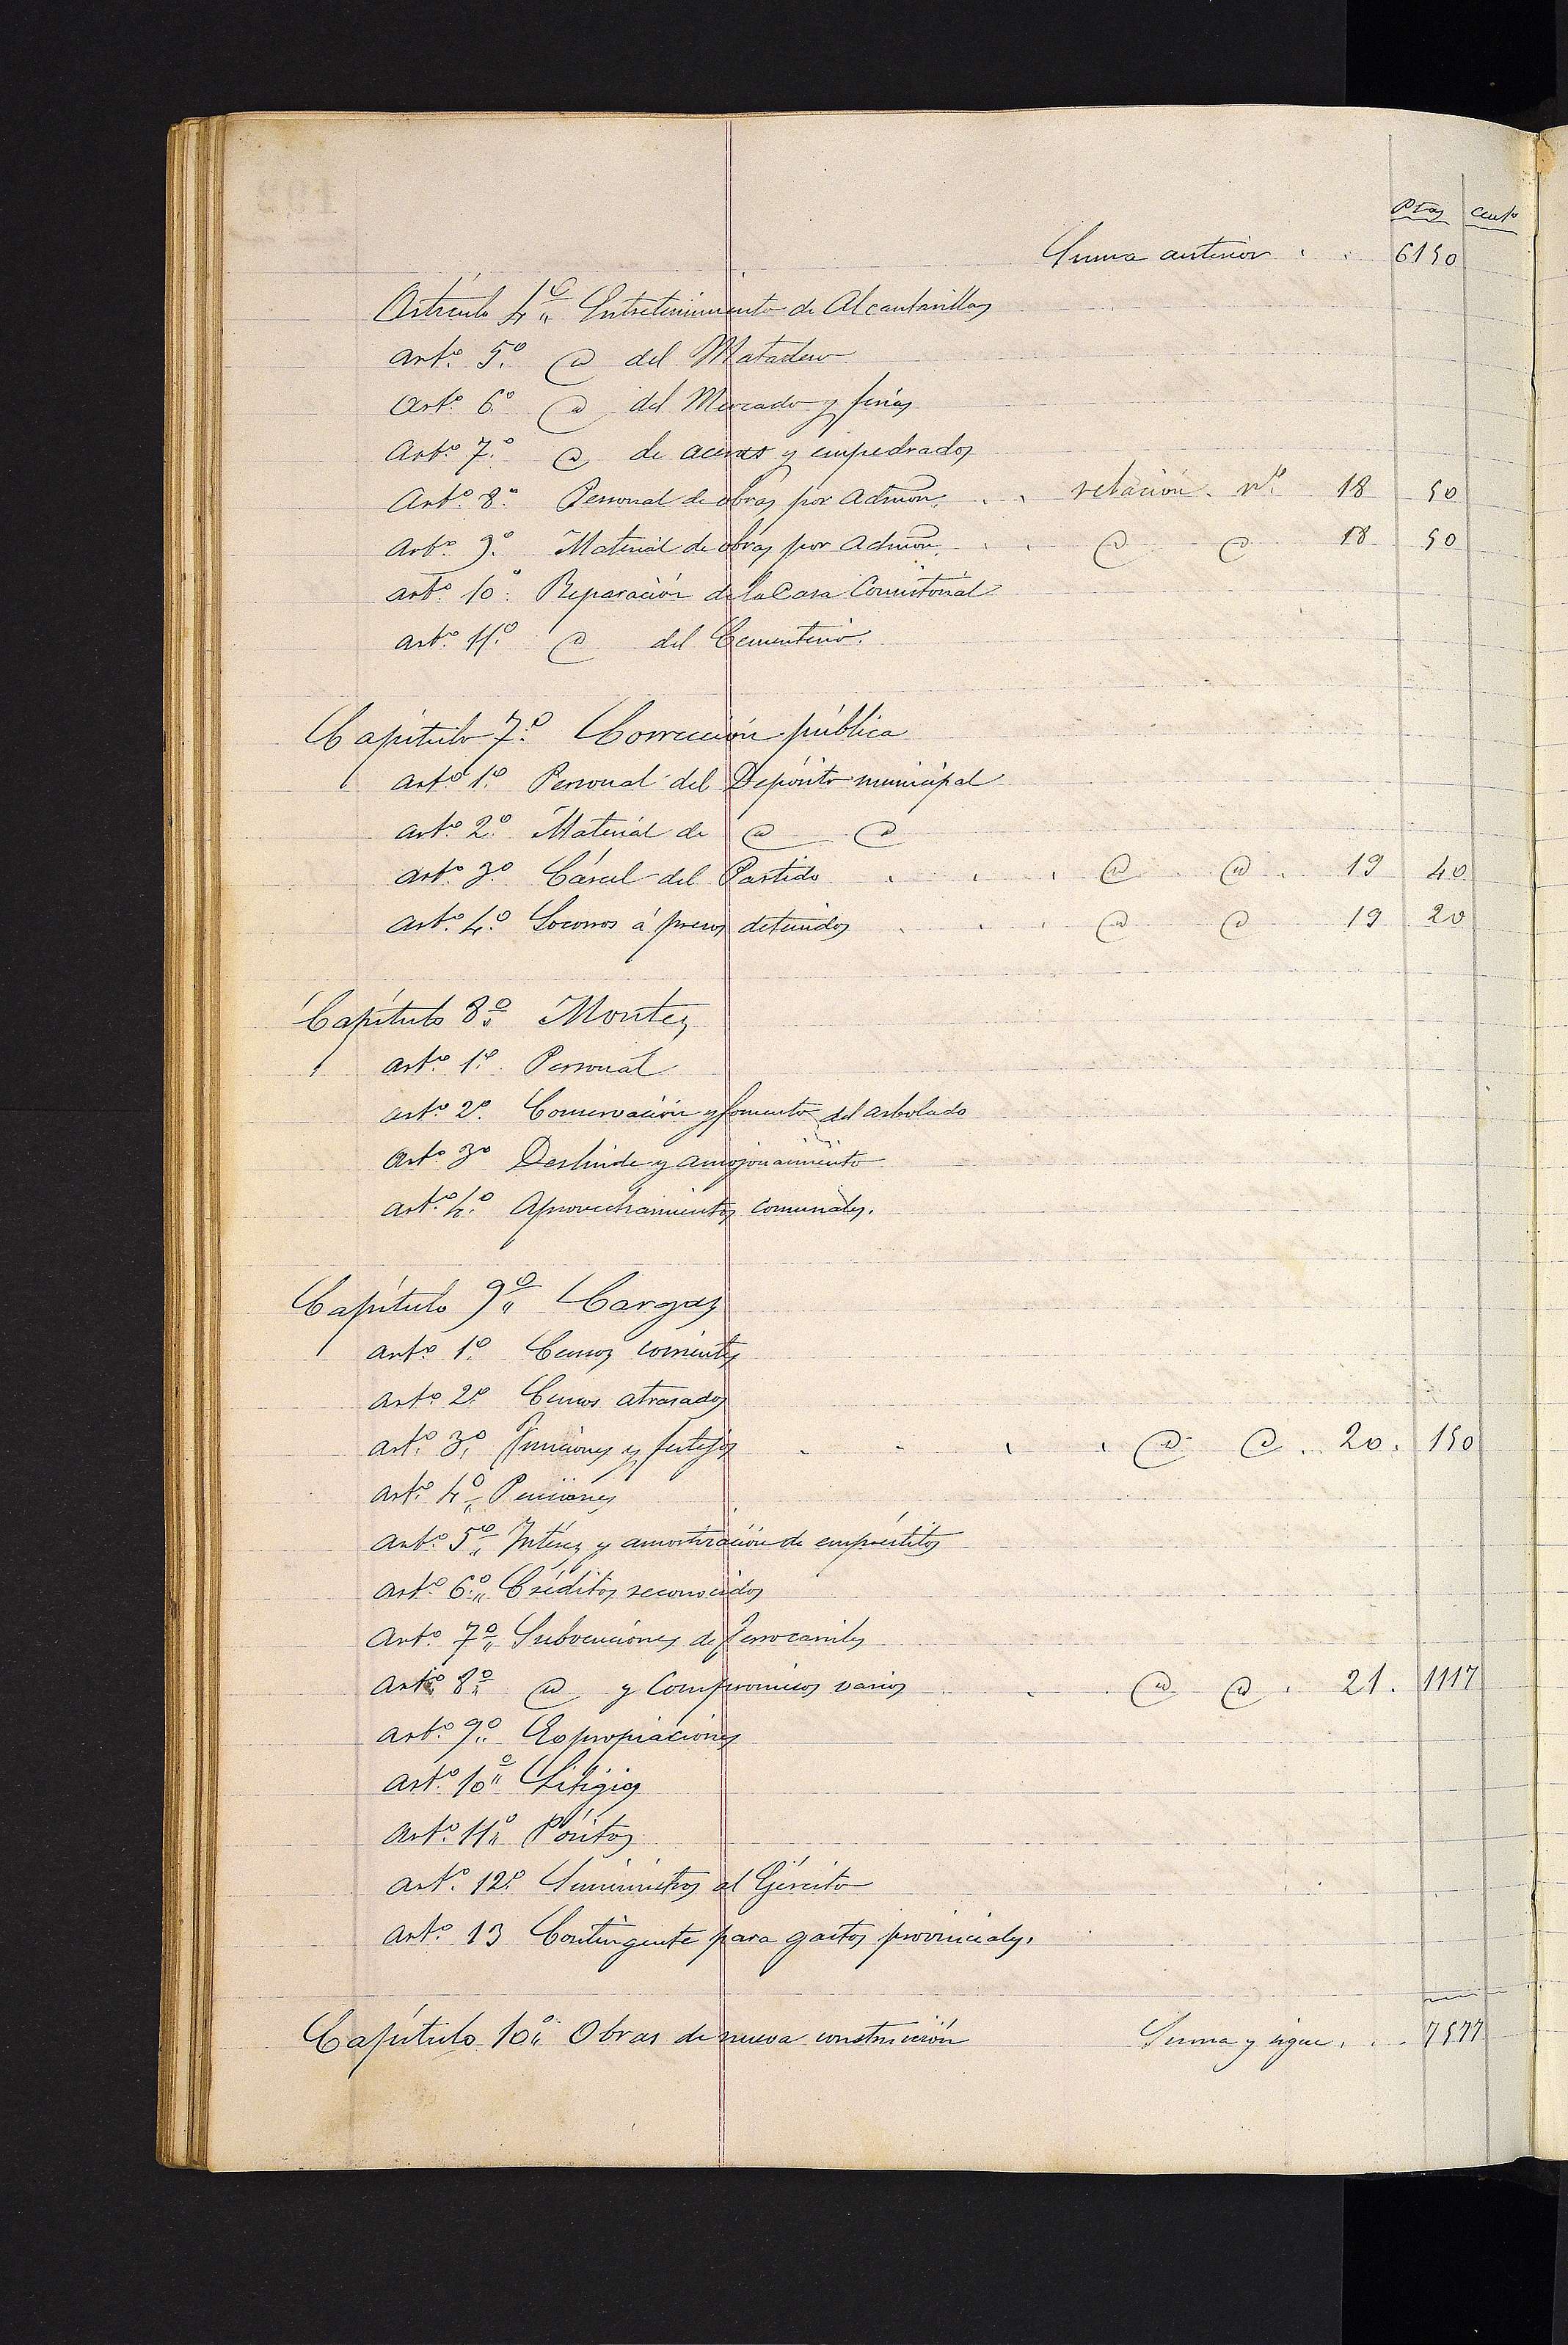 Ptas Cents
Suma anterior . . 6150
Artículo 4º Entretenimiento de Alcantarillas
Artº 5º @ del Matadero
Artº 6º @ del Mercado y ferias
Artº 7º @ de aceras y empedrados
Artº 8º Personal de obras por Admón. . . relación nº 18 50
Artº 9º Material de obras por Admón. . . @ @ 18 50
Artº 10º Reparación de la Casa Consistorial
Artº 11º @ del Cementerio.
Capítulo 7º Corrección pública
Artº 1º Personal del Depósito municipal
Artº 2º Material de @ @
Artº 3º Cárcel del Partido . . . @ @ . 19 40
Artº 4º Socorros á presos detenidos . . . @ @ 19 20
Capítulo 8º Montes
Artº 1º Personal
Artº 2º Conservación y fomento del arbolado
Artº 3º Deslinde y amojonamiento
Artº 4º Aprovechamientos comunales.
Capítulo 9º Cargas
Artº 1º Censos corrientes
Artº 2º Censos atrasados
Artº 3º Funciones y festejos . . . . @ @ . 20 . 150
Artº 4º Pensiones
Artº 5º Interés y amortización de empréstitos
Artº 6º Créditos reconocidos
Artº 7º Subvenciones de ferrocarriles
Artº 8º @ y Compromisos varios . . @ @ . 21 . 1117
Artº 9º Expropiaciones
Artº 10º Litigios
Artº 11º Pósitos
Artº 12º Suministros al Ejército
Artº 13 Contingente para gastos provinciales.
Capítulo 10º Obras de nueva construcción Suma y sigue . . . 7577